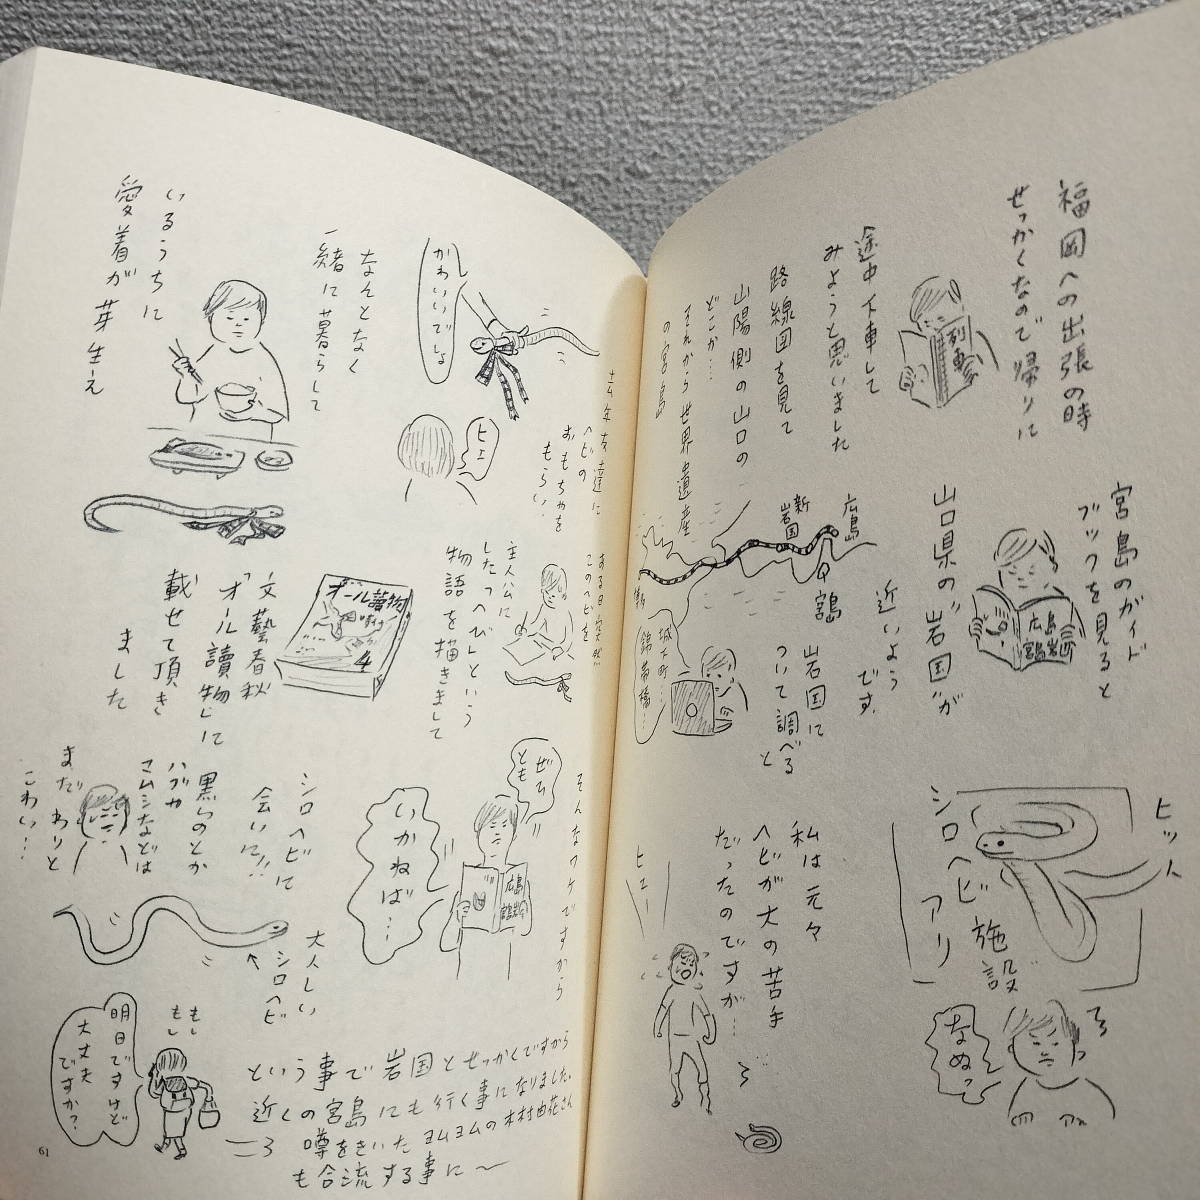 福岡への出張の時
せっかくなので帰りに
途中下車して
みようと思いました
列車
路線図を見て
山陽側の山口の
どこか…
それから世界遺産
の宮島
宮島のガイド
ブックを見ると
山口県の"岩国"が
近いよう
です。
広島
宮島
岩国
広島
新岩国
宮島
岩国に
ついて調べる
と
城下町…
錦帯橋…
ヒット
シロヘビ施設
アリ
なぬっ
私は元々
ヘビが大の苦手
だったのですが…
ヒュー
去年友達に
ヘビの
おもちゃを
もらい…
かわいいでしょ
ヒエ
なんとなく
一緒に暮らして
いるうちに
愛着が芽生え
ある日突然…
このヘビを
主人公に
したっへびいという
物語を描きまして
オール讀物
4
文藝春秋
「オール讀物」に
載せて頂き
ました
そんなワケですから
ぜひ
とも
広島
宮島岩国
いかねば…
シロヘビに
会いに!!
黒いのとか
ハブや
マムシなどは
まだわりと
こわい…
大人しい
シロヘビ
という事で岩国とせっかくですから
近くの宮島にも行く事になりました。
噂をきいたヨムヨムの木村由花さん
も合流する事に〜
もし
もし
明日ですけど
大丈夫
ですか?
61